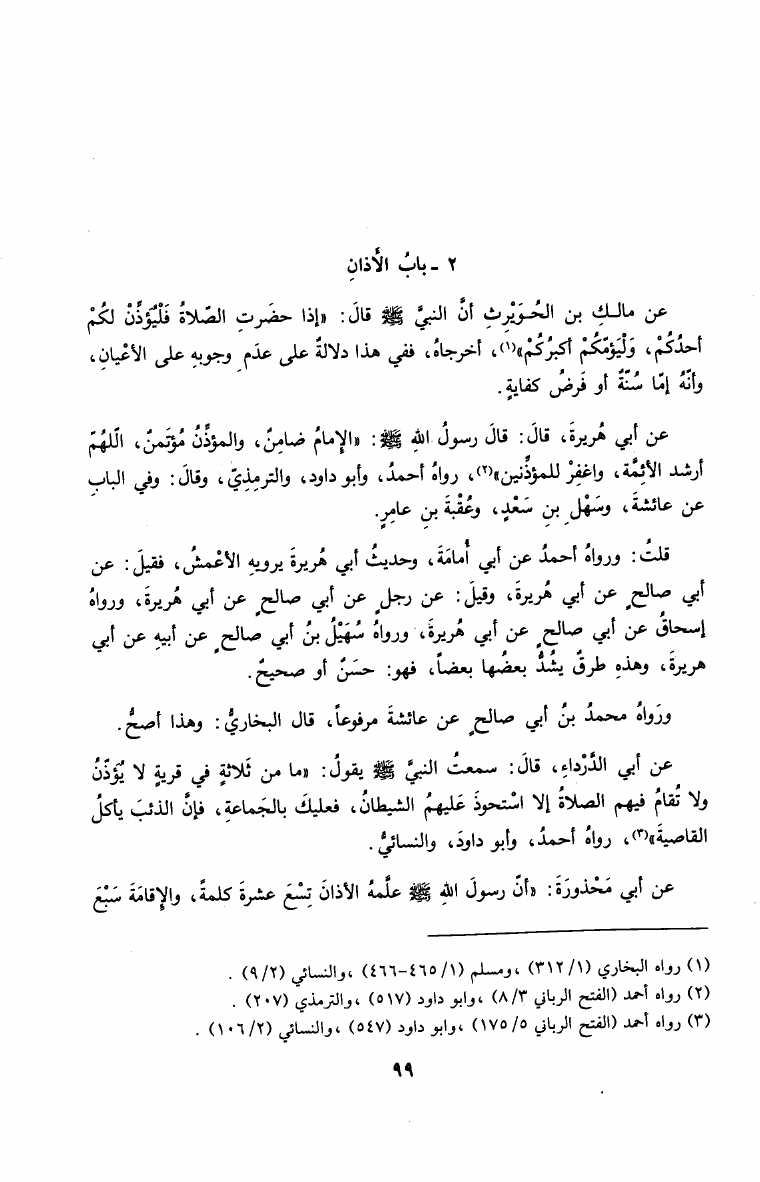 ٢ - بابُ الأَذانِ
عن مالكِ بن الحُوَيْرِثِ أنَّ النبيَّ ﷺ قالَ: «إذا حضَرتِ الصّلاةُ فَلْيُؤذِّنْ لكُمْ
أحدُكُمْ، وَلْيَؤمّكُمْ أكبرُكُمْ»(١)، أخرجاهُ، ففي هذا دلالةٌ على عدَمِ وجوبهِ على الأعْيانِ،
وأنّهُ إمّا سُنّةٌ أو فَرضُ كفايةٍ.
عن أبي هُريرةَ، قالَ: قالَ رسولُ اللهِ ﷺ: «الإمامُ ضامِنٌ، والمؤذِّنُ مُؤتَمنٌ، اللّهُمّ
أرشد الأئِمَّة، واغفِرْ للمؤذِّنين»(٢)، رواهُ أحمدُ، وأبو داود، والترمِذِيّ، وقالَ: وفي البابِ
عن عائشةَ، وسَهْلِ بنِ سَعْدٍ، وعُقْبةَ بنِ عامِرٍ.
قلتُ: ورواهُ أحمدُ عن أبي أُمامَةَ، وحديثُ أبي هُريرةَ يرويهِ الأعْمشُ، فقيلَ: عن
أبي صالحٍ عن أبي هُريرةَ، وقيلَ: عن رجلٍ عن أبي صالحٍ عن أبي هُريرةَ، ورواهُ
إسحاقُ عن أبي صالحٍ عن أبي هُريرةَ، ورواهُ سُهَيْلُ بنُ أبي صالحٍ عن أبيهِ عن أبي
هريرةَ، وهذهِ طرقٌ يشُدُّ بعضُها بعضاً، فهو: حسَنٌ أو صحيحٌ.
ورَواهُ محمدُ بنُ أبي صالحٍ عن عائشةَ مرفوعاً، قال البخاريُّ: وهذا أصحُّ.
عن أبي الدَّرْداءِ، قالَ: سمعتُ النبيَّ ﷺ يقولُ: «ما من ثَلاثةٍ في قريةٍ لا يُؤذّنُ
ولا تُقامُ فيهم الصلاةُ إلا اسْتحوذَ عَليهمُ الشيطانُ، فعليكَ بالجَماعةِ، فإنَّ الذئبَ يأكلُ
القاصيةَ»(٣)، رواهُ أحمدُ، وأبو داودَ، والنسائيُّ.
عن أبي مَحْذورَةَ: «أنّ رسولَ اللهِ ﷺ علَّمهُ الأذانَ تِسْعَ عشرةَ كلمةً، والإقامَةَ سَبْعَ
(١) رواه البخاري (٣١٢/١) ،ومسلم (٤٦٥/١-٤٦٦) ،والنسائي (٩/٢) .
(٢) رواه أحمد (الفتح الرباني ٨/٣) ،وابو داود (٥١٧) ،والترمذي (٢٠٧) .
(٣) رواه أحمد (الفتح الرباني ١٧٥/٥) ،وابو داود (٥٤٧) ،والنسائي (١٠٦/٢) .
٩٩